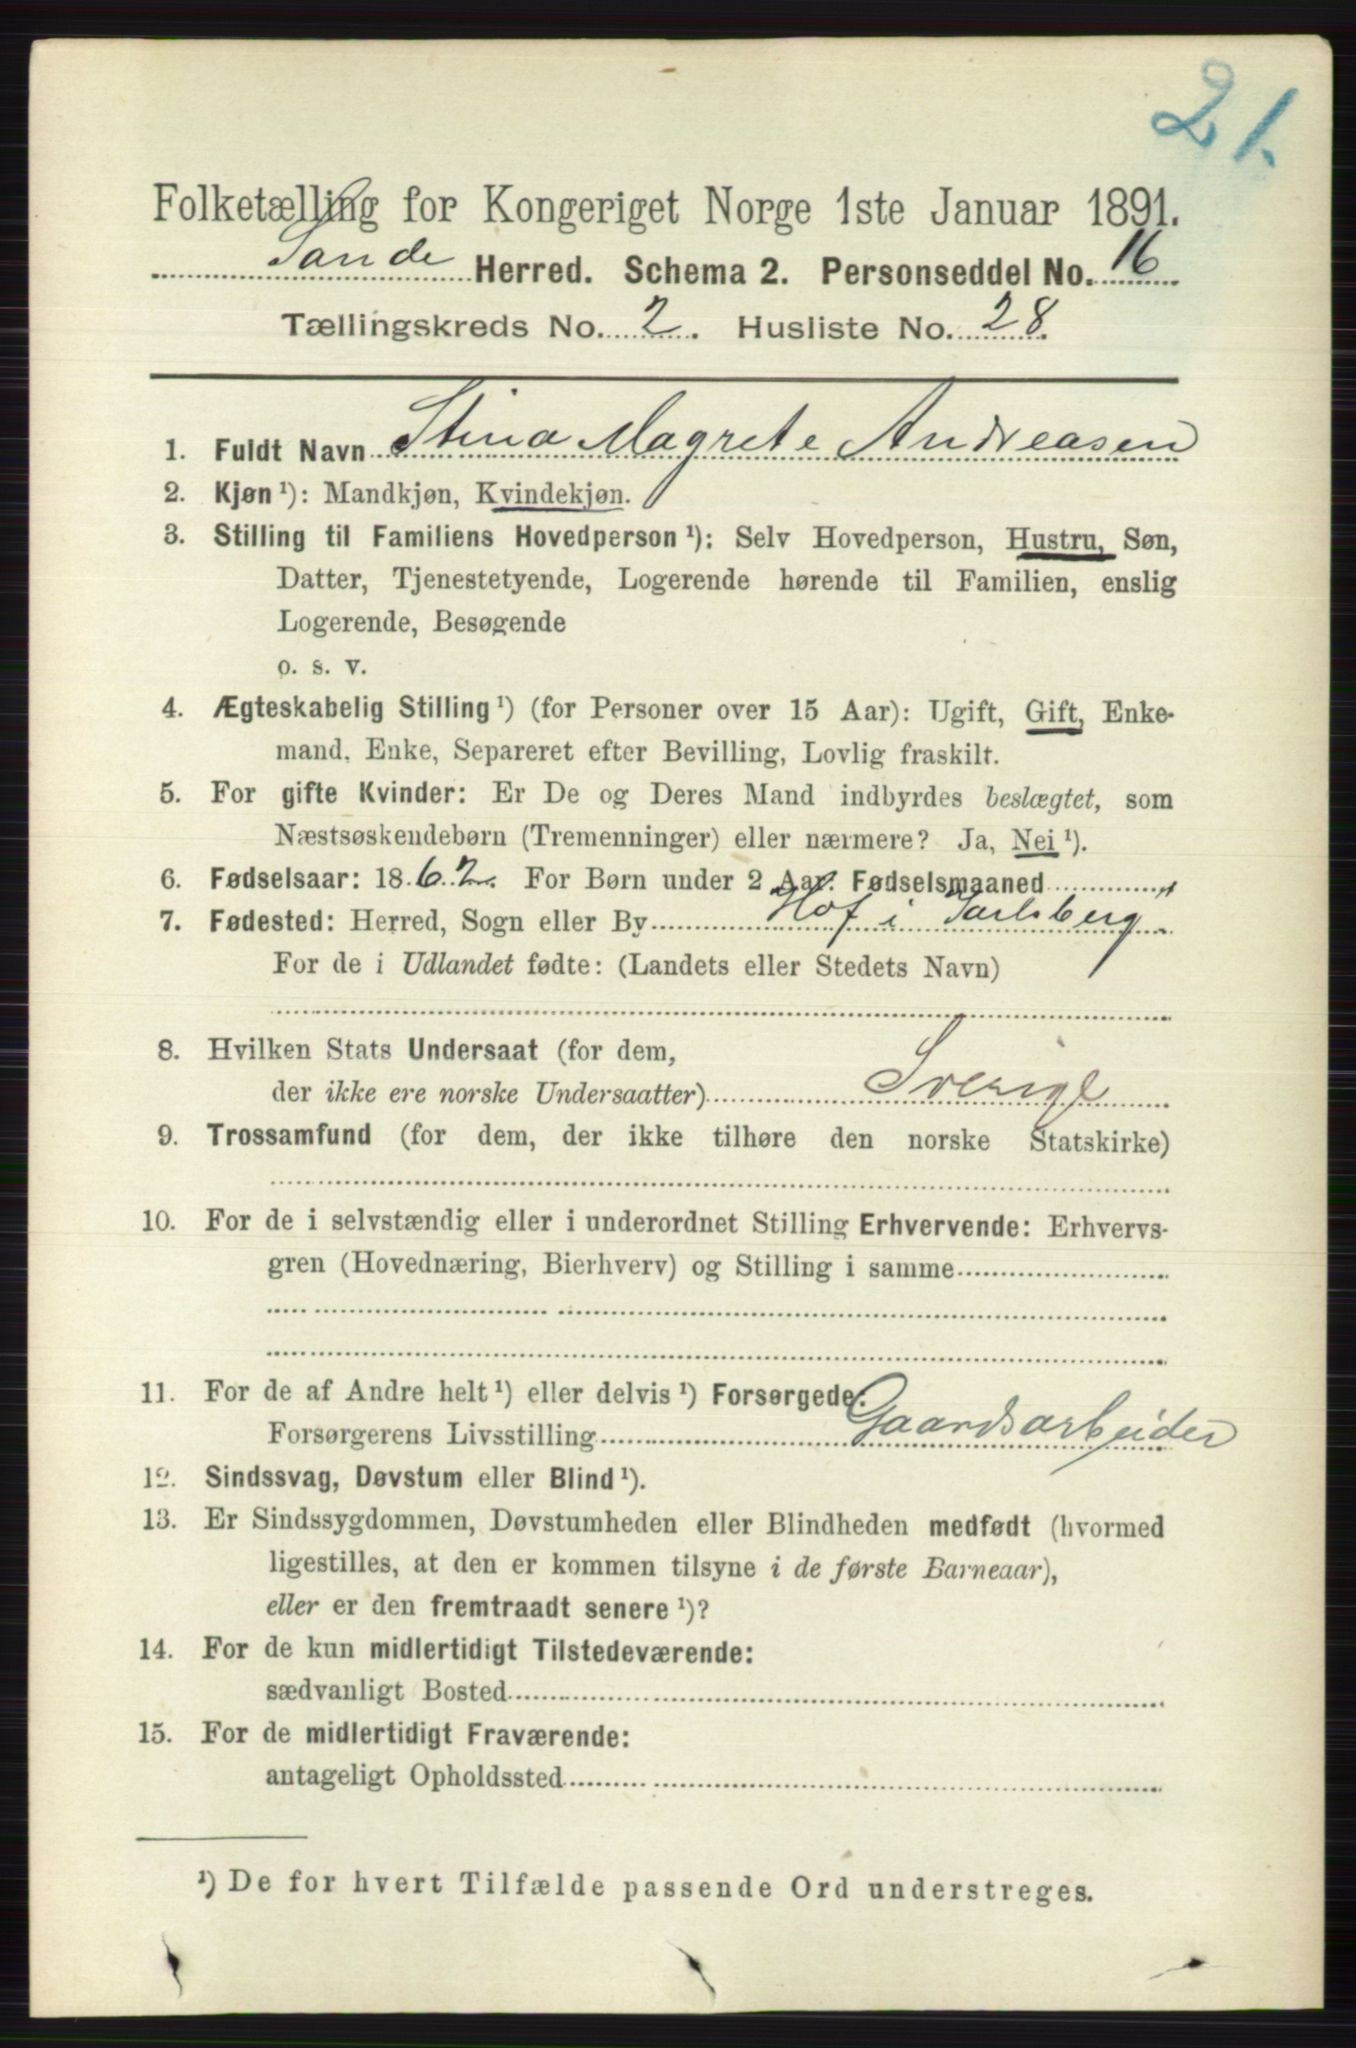 21.
Folketælling for Kongeriget Norge 1ste Januar 1891.
Sande Herred. Schema 2. Personseddel No. 16
Tællingskreds No. 2. Husliste No. 28.
1. Fuldt Navn Stina Magrete Andreasen
2. Kjøn ¹): Mandkjøn, Kvindekjøn.
3. Stilling til Familiens Hovedperson ¹): Selv Hovedperson, Hustru, Søn,
Datter, Tjenestetyende, Logerende hørende til Familien, enslig
Logerende, Besøgende
o. s. v.
4. Ægteskabelig Stilling ¹) (for Personer over 15 Aar): Ugift, Gift, Enke-
mand, Enke, Separeret efter Bevilling, Lovlig fraskilt.
5. For gifte Kvinder: Er De og Deres Mand indbyrdes beslægtet, som
Næstsøskendebørn (Tremenninger) eller nærmere? Ja, Nei ¹).
6. Fødselsaar: 1862. For Børn under 2 Aar. Fødselsmaaned
7. Fødested: Herred, Sogn eller By Hof i Jarlsberg
For de i Udlandet fødte: (Landets eller Stedets Navn)
8. Hvilken Stats Undersaat (for dem,
der ikke ere norske Undersaatter) Sverige
9. Trossamfund (for dem, der ikke tilhøre den norske Statskirke)
10. For de i selvstændig eller i underordnet Stilling Erhvervende: Erhvervs-
gren (Hovednæring, Bierhverv) og Stilling i samme
11. For de af Andre helt ¹) eller delvis ¹) Forsørgede:
Forsørgerens Livsstilling Gaardsarbeider
12. Sindssvag, Døvstum eller Blind ¹).
13. Er Sindssygdommen, Døvstumheden eller Blindheden medfødt (hvormed
ligestilles, at den er kommen tilsyne i de første Barneaar),
eller er den fremtraadt senere ¹)?
14. For de kun midlertidigt Tilstedeværende:
sædvanligt Bosted
15. For de midlertidigt Fraværende:
antageligt Opholdssted
¹) De for hvert Tilfælde passende Ord understreges.